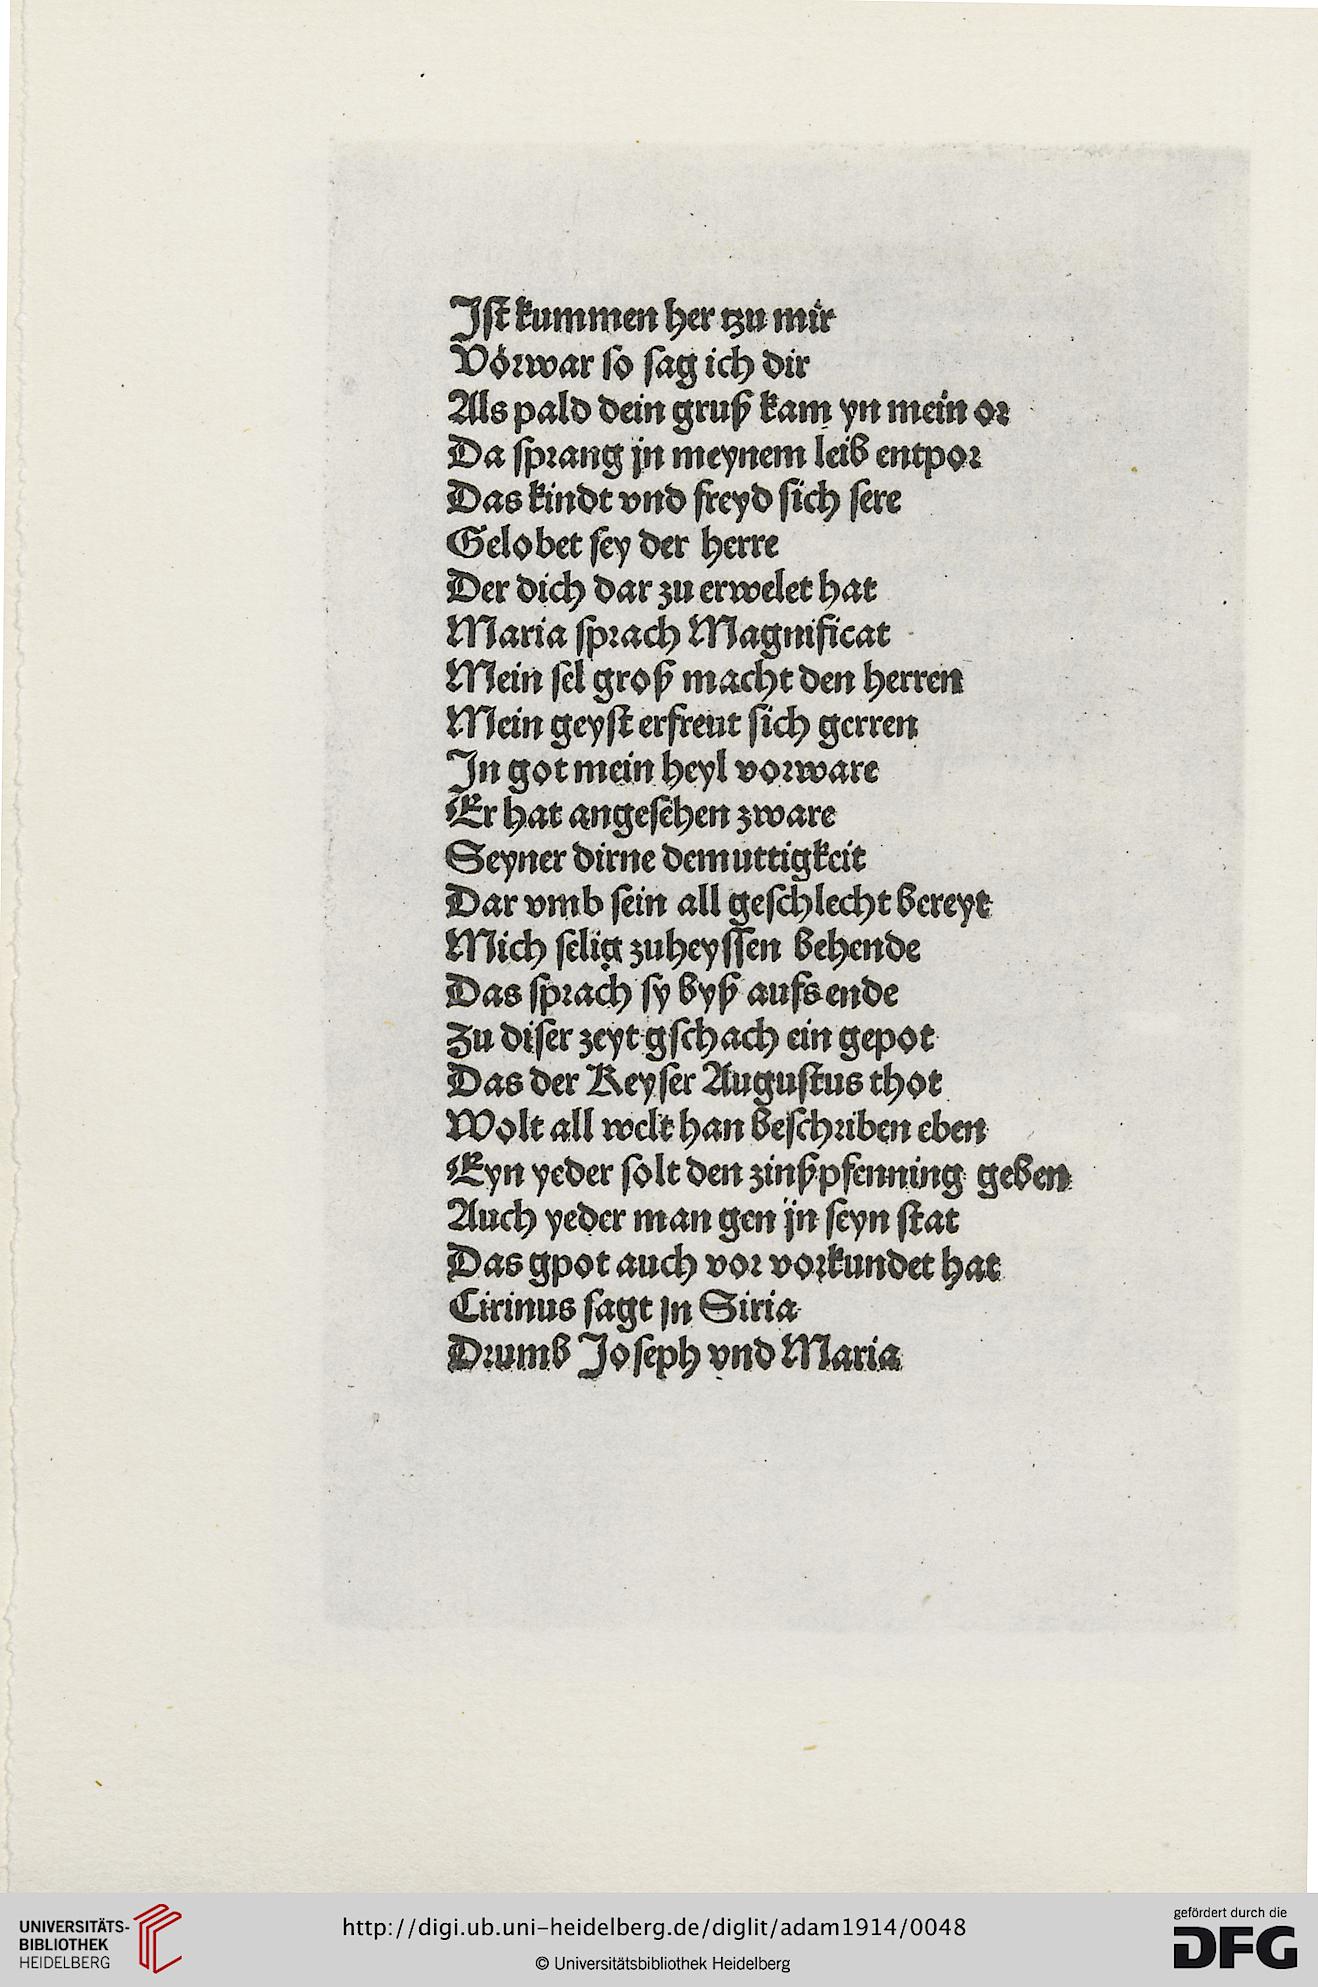 Jſt kummen her tzu mir
Vörwar ſo ſag ich dir
Als pald dein gruß kam yn mein or
Da ſprang jn meynem leib entpor
Das kindt vnd freyd ſich ſere
Gelobet ſey der herre
Der dich dar zu erwelet hat
Maria ſprach Magnificat
Mein ſel groß macht den herren
Mein geyſt erfreut ſich gerren
Jn got mein heyl vorware
Er hat angeſehen zware
Seyner dirne demuttigkeit
Dar vmb ſein all geſchlecht bereyt
Mich ſelig zuheyſſen behende
Das ſprach ſy byß aufs ende
Zu diſer zeyt gſchach ein gepot
Das der Keyſer Auguſtus thot
Wolt all welt han beſchriben eben
Eyn yeder ſolt den zinßpfenning geben
Auch yeder man gen jn ſeyn ſtat
Das gpot auch vor vorkundet hat
Cirinus ſagt jn Siria
Drumb Joſeph vnd Maria
UNIVERSITÄTS-
BIBLIOTHEK
HEIDELBERG
http://digi.ub.uni-heidelberg.de/diglit/adam1914/0048
© Universitätsbibliothek Heidelberg
gefördert durch die
DFG